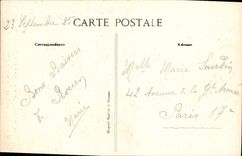 23 Septembre
CARTE POSTALE
Correspondance
Adresse
Bons Baisers
de Rouen
Marie
Melle Marie
42 Avenue de la Gde Armée
Paris 17e